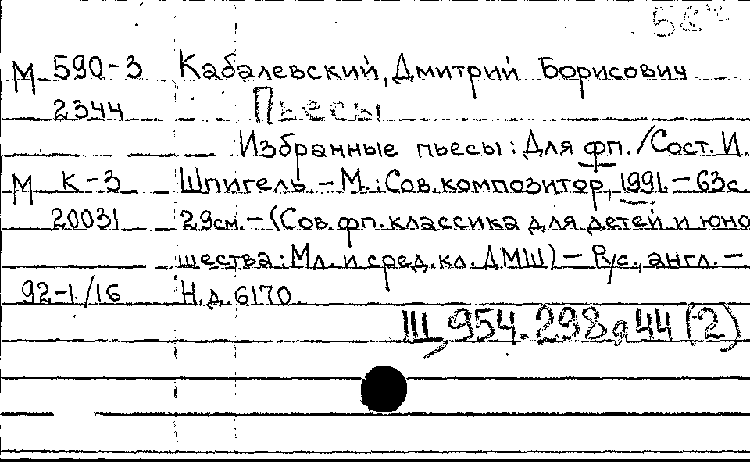 М 590-3 Кабалевский, Дмитрий Борисович
2344 Пьесы
Избранные пьесы: Для фп. / Сост. И.
М К-3 Шпигель. - М.: Сов. композитор, 1991. - 63с.
20031 29см. - (Сов. фп. классика для детей и юно
шества: Мл. и сред. кл. ДМШ) - Рус., англ. -
92-1/16 Н.д. 6170.
Щ954.298я44(2)